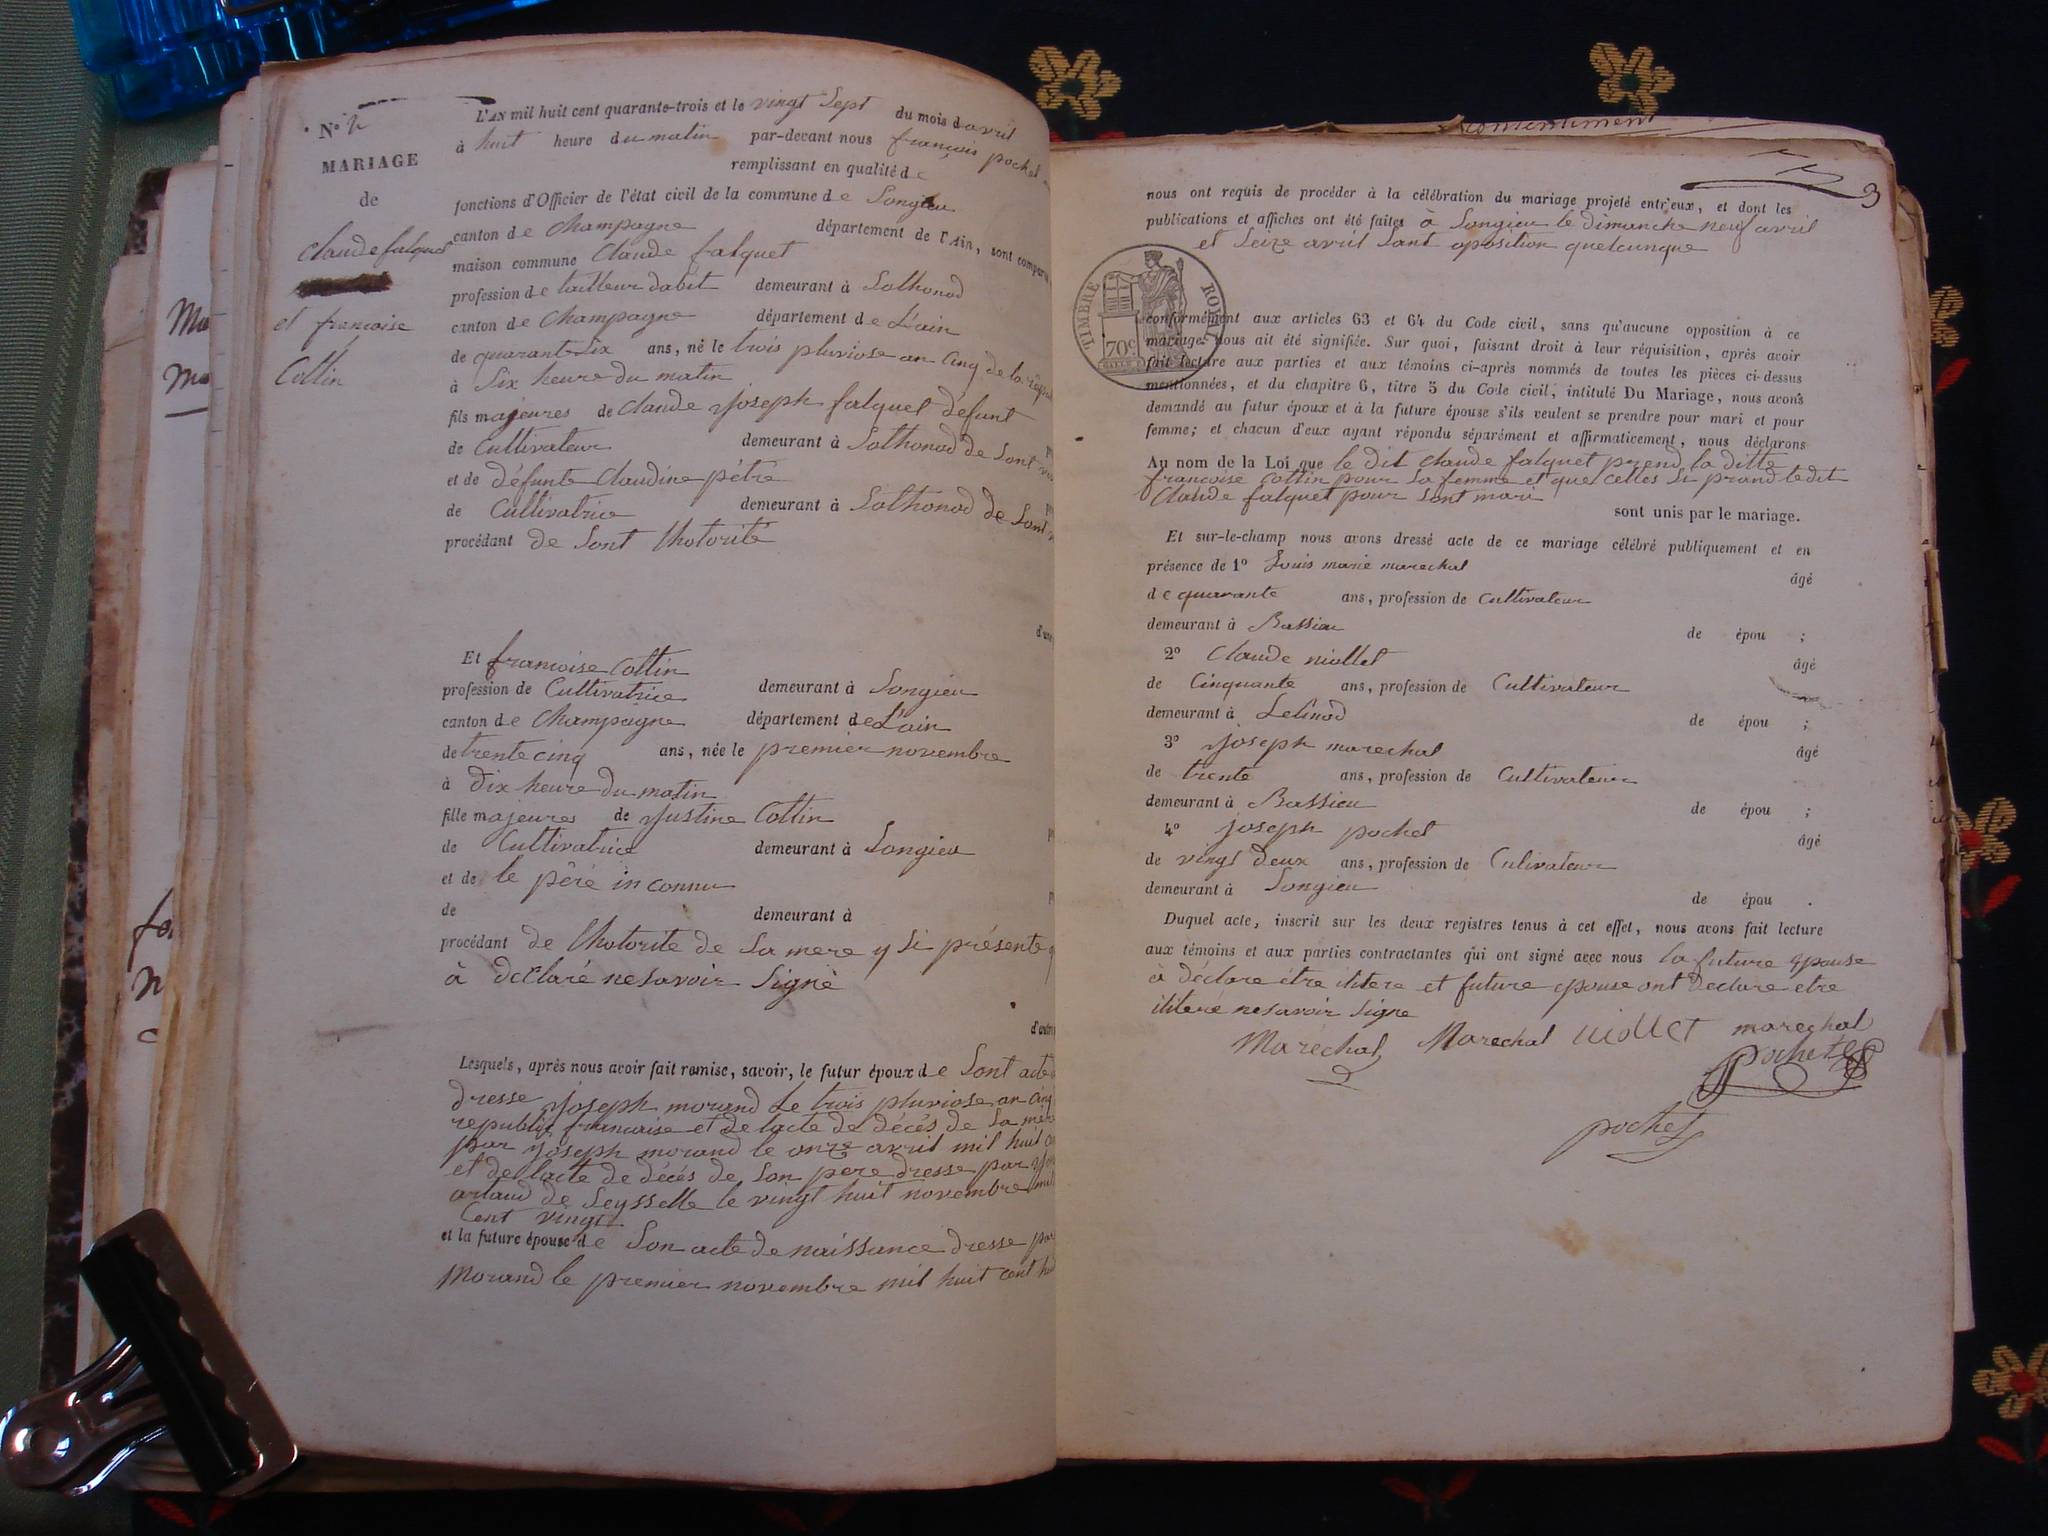 N° 2
MARIAGE
de
Claude falquet
et francoise
Cottin
L'AN mil huit cent quarante-trois et le vingt Sept du mois d avril
à huit heure du matin par-devant nous françois pochet
remplissant en qualité de
fonctions d'Officier de l'état civil de la commune de Songieu
canton de Champagne département de l'Ain, sont comparu
maison commune Claude falquet
profession de tailleur dabit demeurant à Sothonod
canton de Champagne département de L'ain
de quarant Six ans, né le trois pluviose an Cinq de la répu
à Six heure du matin
fils majeures de Claude joseph falquet défunt
de Cultivateur demeurant à Sothonod de Sont
et de défunte Claudine pétre
de Cultivatrice demeurant à Sothonod de Sont
procédant de Sont lhotorité
d'une
Et francoise Cottin
profession de Cultivatrice demeurant à Songieu
canton de Champagne département de L'ain
de trente cinq ans, née le premier novembre
à dix heure du matin
fille majeures de justine Cottin
de Cultivatrice demeurant à Songieu
et de le péré in connu
de demeurant à
procédant de lhotorite de Sa mere y Si présente
à declaré nesavoir Signé
d'autre
Lesquels, après nous avoir fait remise, savoir, le futur époux de Sont acte
dresse joseph morand le trois pluviose an Cinq
republiq francaise et de lacte de décés de Sa mere
par joseph morand le onze avril mil huit
et de lacte de décés de Son pere dresse par
artaud de Seysselle le vingt huit novembre mil
Cent vingt
et la future épouse de Son acte de naissance dresse par
Morand le premier novembre mil huit cent
consentiment
3
nous ont requis de procéder à la célébration du mariage projeté entr'eux, et dont les
publications et affiches ont été faites à Songieu le dimanche neuf avril
et Seize avril Sant oposition quelcunque
TIMBRE ROYAL
70c
conformément aux articles 63 et 64 du Code civil, sans qu'aucune opposition à ce
mariage nous ait été signifiée. Sur quoi, faisant droit à leur réquisition, après avoir
fait lecture aux parties et aux témoins ci-après nommés de toutes les pièces ci-dessus
mentionnées, et du chapitre 6, titre 5 du Code civil, intitulé Du Mariage, nous avons
demandé au futur époux et à la future épouse s'ils veulent se prendre pour mari et pour
femme; et chacun d'eux ayant répondu séparément et affirmaticement, nous déclarons
Au nom de la Loi que le dit Claude falquet prend la ditte
francoise Cottin pour Sa femme et que celles Si prand ledit
Claude falquet pour Sont mari
sont unis par le mariage.
Et sur-le-champ nous avons dressé acte de ce mariage célébré publiquement et en
présence de 1° Louis marie marechal âgé
de quarante ans, profession de Cultivateur
demeurant à Bassieu de épou ;
2° Claude niollet âgé
de Cinquante ans, profession de Cultivateur
demeurant à Lelinod de épou ;
3° joseph marechal âgé
de trente ans, profession de Cultivateur
demeurant à Bassieu de épou ;
4° joseph pochet âgé
de vingt deux ans, profession de Culivateur
demeurant à Songieu de épou .
Duquel acte, inscrit sur les deux registres tenus à cet effet, nous avons fait lecture
aux témoins et aux parties contractantes qui ont signé avec nous la future epouse
à déclare étre ilitere et future epouse ont declare etre
ilitere nesavoir Signe
Maréchal Marechal niollet marechal
pochet
pochet